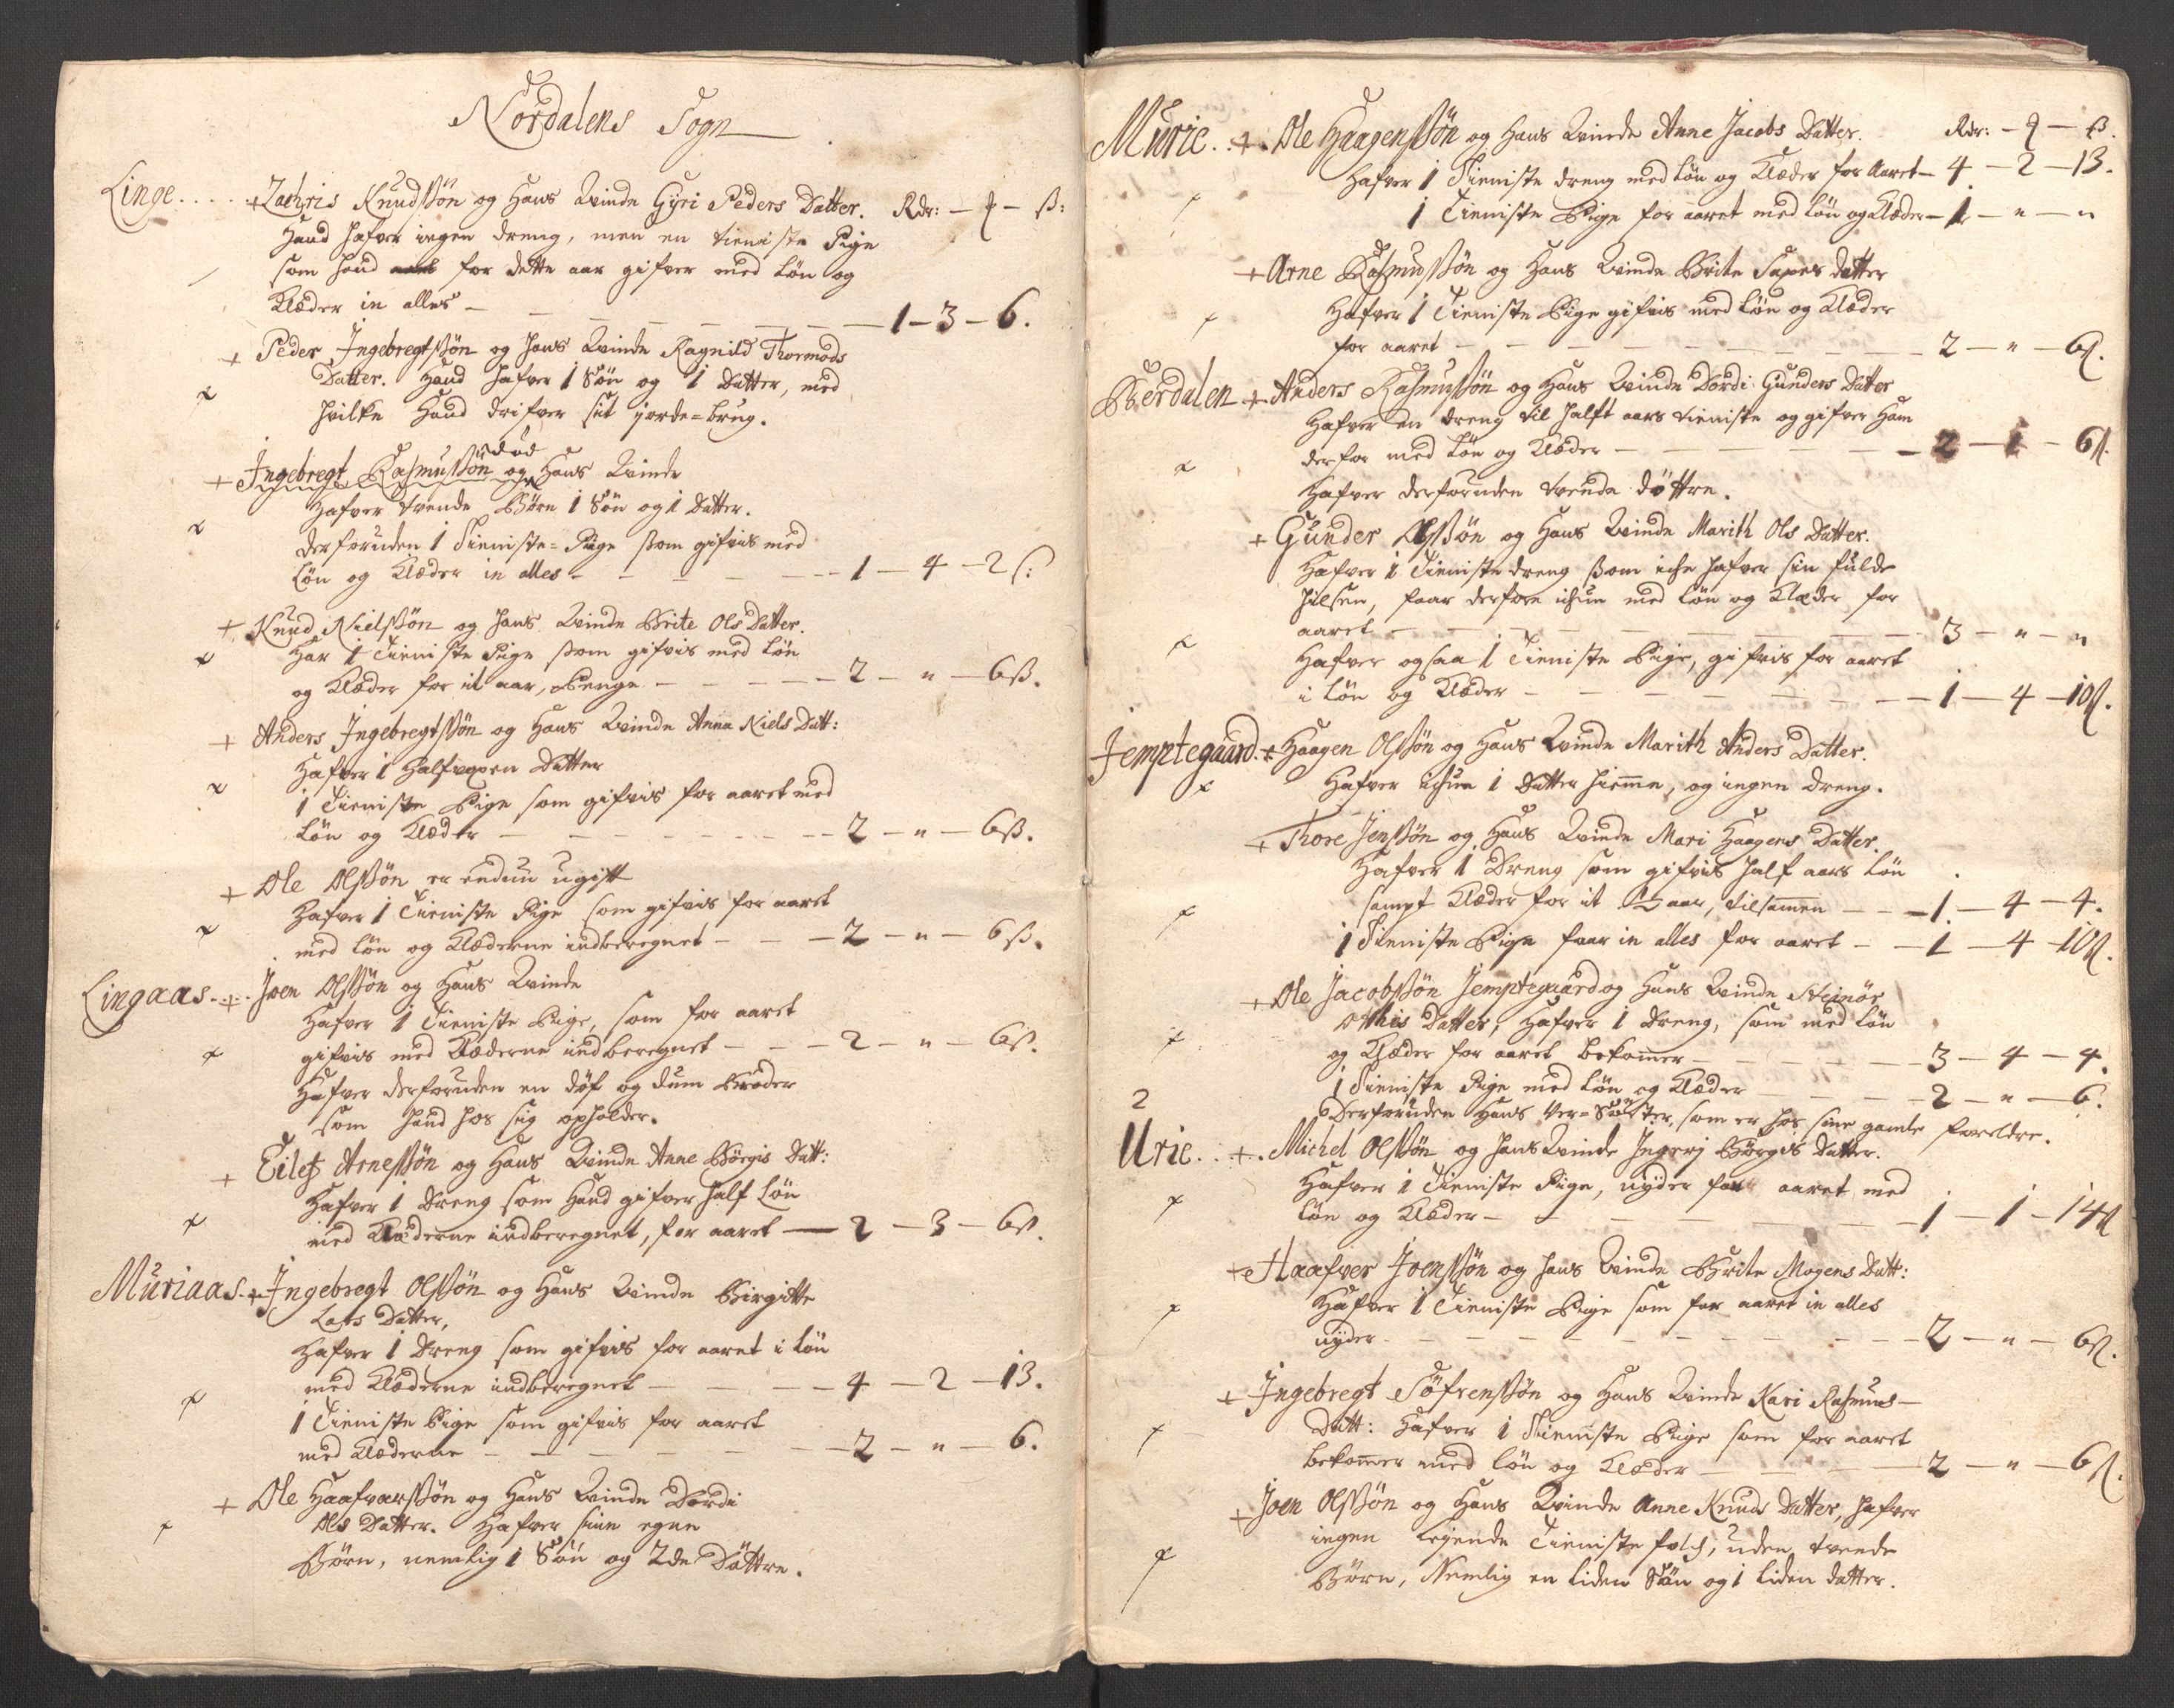 Nordalens Sogn
Linge. . . . . + Zachris Knudssøn og Hans Qvinde Gyri Peders Datter. Rdr: – ₰ – ß:
Hand hafver ingen dreng, men en tieniste Pige
som hand for dette aar gifver med Løn og
Klæder in alles – 1 – 3 – 6.
+ Peder Ingebregtssøn og hans Qvinde Ragnild Thormods
Datter. Hand hafver 1 Søn og 1 Datter, med
hvilke Hand drifver sit jorde=brug.
død
+ Ingebregt Rasmussøn og Hans Qvinde
hafver tvende Børn 1 Søn og 1 Datter.
derforuden 1 Tieniste=Pige ssom gifvis med
Løn og Klæder in alles – 1 – 4 – 2 ß:
+ Knud Nielssøn og hans Qvinde Brite Ols Datter.
Har 1 Tieniste Pige ssom gifvis med Løn
og Klæder for it aar, Penge – 2 – " – 6 ß.
+ Anders Ingebregtssøn og Hans Qvinde Anna Niels Datt:
Hafver 1 Halfvoxen Datter
1 Tieniste Pige som gifvis for aaret med
Løn og Klæder – 2 – " – 6 ß.
+ Ole Olssøn er endnu ugift
Hafver 1 Tieniste Pige som gifvis for aaret
med Løn og Klæderne indberegnet – 2 – " – 6 ß.
Lingaas. + . Joen Olssøn og Hans Qvinde
Hafver 1 Tieniste Pige, som for aaret
gifvis med Klæderne indberegnet – 2 – " – 6 ß.
Hafver derforuden en døf og dum Broder
som hand hos sig opholder.
+ Eilef Arnessøn og Hans Qvinde Anne Børgis Datt:
Hafver 1 Dreng som Hand gifver half Løn
med Klæderne indberegnet, for aaret – 2 – 3 – 6 ß.
Muriaas. + . Ingebregt Olssøn og Hans Qvinde Birgitte
Lars Datter,
Hafver 1 Dreng som gifvis for aaret i Løn
med Klæderne indberegnet – 4 – 2 – 13.
1 Tieniste Pige som gifvis for aaret
med Klæderne – 2 – " – 6.
+ Ole Haafvarssøn og Hans Qvinde Dordi
Ols Datter. Hafver sine egne
Børn, nemlig 1 Søn og 2de Døttre.
Murie. . + . Ole Haagenssøn og Hans Qvinde Anne Jacobs Datter. Rdr: – ₰ – ß.
Hafver 1 Tieniste dreng med Løn og Klæder for Aaret – 4 – 2 – 13.
1 Tieniste Pige for aaret med Løn og Klæder – 1 – " – "
+ Arne Rasmussøn og Hans Qvinde Brite Saxes Datter
Hafver 1 Tieniste Pige gifvis med Løn og Klæder
for aaret – 2 – " – 6 ß.
Berdalen + Anders Rasmussøn og Hans Qvinde Dordi Gunders Datter
Hafver en dreng til halft aars tieniste og gifver Ham
derfor med Løn og Klæder – 2 – 1 – 6 ß.
Hafver derforuden tvende døttre.
+ Gunder Olssøn og Hans Qvinde Marith Ols Datter.
Hafver 1 Tieniste dreng ssom iche hafver sin fulde
hilsen, faar derfore ichun med Løn og Klæder for
aaret – 3 – " – "
Hafver ogsaa 1 Tieniste Pige, gifvis for aaret
i Løn og Klæder – 1 – 4 – 10 ß.
Jemptegaard. + Haagen Olssøn og Hans Qvinde Marith Anders Datter.
Hafver ichun 1 Datter hiemme, og ingen dreng.
+ Thore Jenssøn og Hans Qvinde Mari Haagens Datter.
Hafver 1 Dreng som gifvis half aars Løn
sampt Klæder for it ½ aar, tilsamen – 1 – 4 – 4.
1 Tieniste Pige faar in alles for aaret – 1 – 4 – 10 ß.
+ Ole Jacobssøn Jemptegaard og Hans Qvinde Steinør
Othis Datter, Hafver 1 Dreng, som med Løn
og Klæder for aaret bekommer – 3 – 4 – 4.
1 Tieniste Pige med Løn og Klæder – 2 – " – 6.
2 Derforuden Hans Ver=Søster, som er hos sine gamle foreldre.
Urie. . + . Michel Olssøn og Hans Qvinde Ingerj Børges Datter.
Hafver 1 Tieniste Pige, nyder for aaret med
Løn og Klæder – 1 – 1 – 14 ß
+ Haafver Joenssøn og hans Qvinde Brite Mogens Datt:
Hafver 1 Tieniste Pige som for aaret in alles
nyder – 2 – " – 6 ß.
+ Ingebregt Søfrenssøn og Hans Qvinde Kari Rasmus –
Datt: Hafver 1 Tieniste Pige som for aaret
bekommer med Løn og Klæder – 2 – " – 6 ß.
+ Joen Olssøn og Hans Qvinde Anne Knuds Datter, hafver
ingen leyende Tieniste folch, uden tvende
Børn, Nemlig en liden Søn og 1 liden datter.